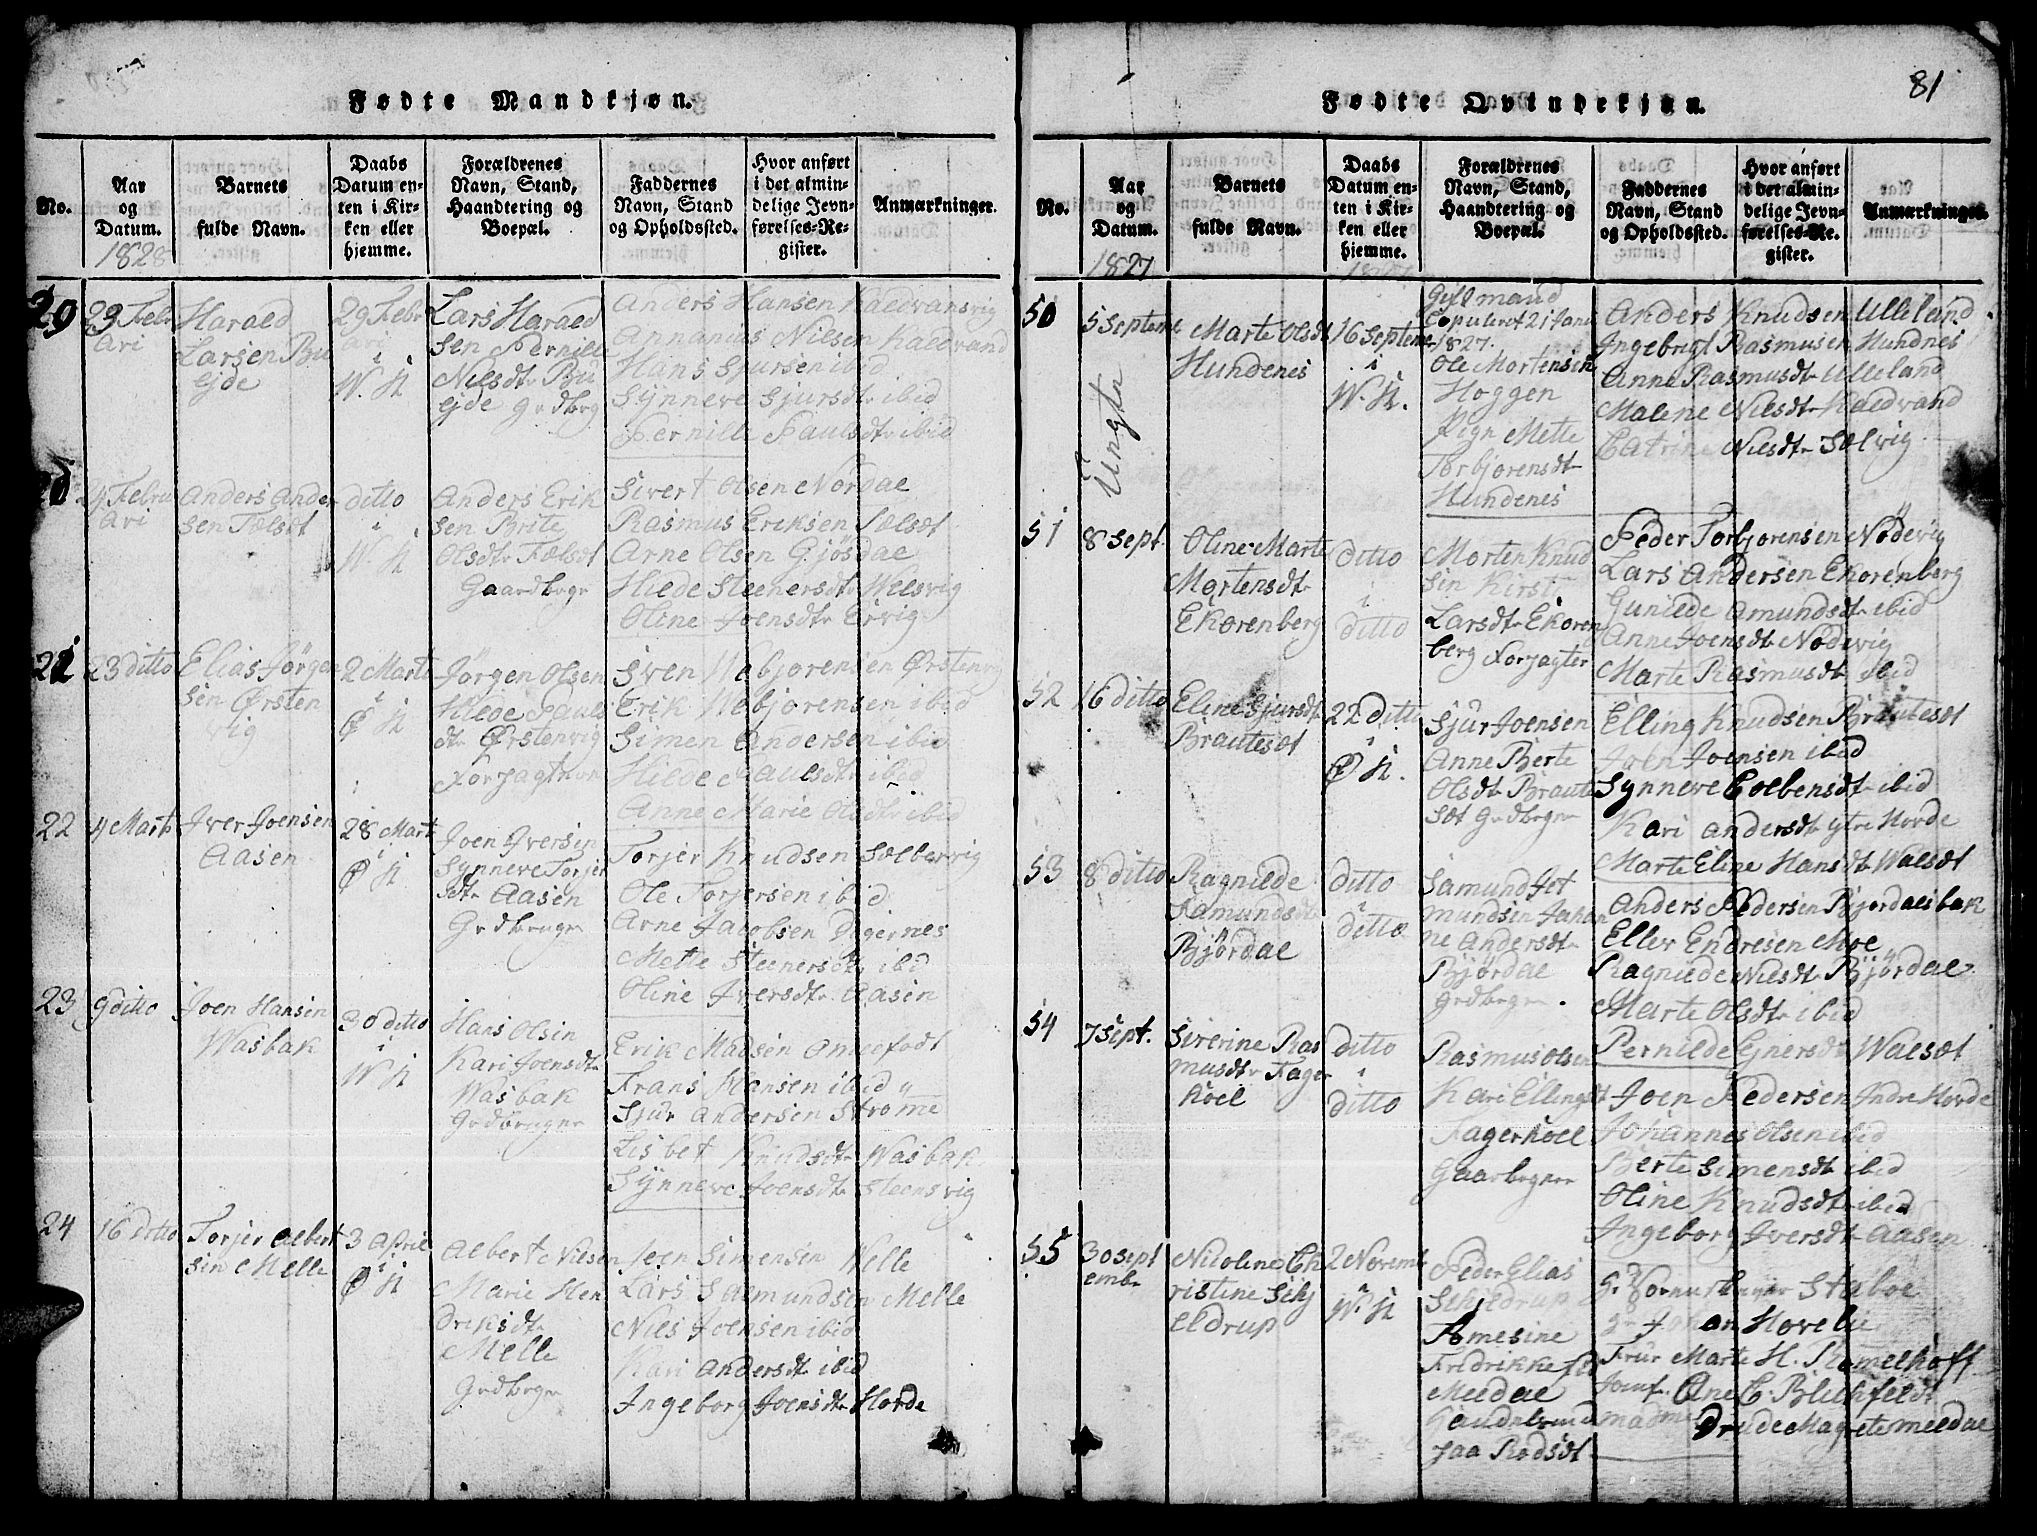 81
Fødte Mandkjøn.
No.
Aar og Datum.
Barnets fulde Navn.
Daabs Datum enten i Kirken eller hjemme.
Forældrenes Navn, Stand, Haandtering og Boepæl.
Faddernes Navn, Stand og Opholdssted.
Hvor anført i det almindelige Jevnførelses-Register.
Anmærkninger.
1828
29
Harald
Larsen Bu
ejde
29 Febr
ari
i
W. K
Lars Harald
sen Pernille
Nilsdtr Bu
ejde Grdbrg
Anders Hansen Kaldvansvig
Annanias Nilsen Kaldvand
Hans Sjursen ibid
Synneve Sjursdtr ibid
Pernille Paulsdtr ibid
4 Febru
ari
Anders Ander
sen Tælsæt
ditto
i
W. K
Anders Erik
sen Brite
Olsdtr Tælsæt
Gaardbrgr
Sivert Olsen Nordal
Rasmus Eriksen Tælsæt
Arne Olsen Gjösdae
Hilde Steenersdtr Welsvig
Oline Joensdtr Eivig
21
23 ditto
Elias Jörgen
sen Ørsten
vig
2 Marti
i
Ø K
Jørgen Olsen
Hilde Pauls
dtr Ørstenvig
Forpagter
Sven Webjorensen Ørstenvig
Erik Webjorensen ibid
Simen Andersen ibid
Hilde Paulsdtr ibid
Anne Marie Olsdtr ibid
22
4 Marti
Iver Joensen
Aasen
28 Marti
i
Ø K
Joen Iversin
Synneve Torjer
sdtr Aasen
Grdbrugr
Torjer Knudsen Sælbervig
Ole Torjersen ibid
Arne Jacobsen Digernes
Mette Steenersdtr ibid
Oline Iversdtr Aasen
23
9 ditto
Joen Hansin
Wasbak
30 ditto
i
W K
Hans Olsin
Kari Joensdtr
Wasbak
Grdbrugr
Erik Madsen Omelfodt
Frans Hansen ibid
Sjur Andersen Strome
Lisbet Knudsdtr Wasbak
Synneve Joensdtr Steensvig
24
16 Ditto
Torjer Albert
sin Melle
3 April
i
Ø K
Albert Nilsen
Marie Hen
driksdtr
Melle
Grdbrgr
Joen Simensin Welle
Lars Salmundsen Melle
Nils Joensen ibid
Kari Andersdtr ibid
Ingeborg Joensdtr Horde
Fødte Qvindekjøn.
No.
Aar og Datum.
Barnets fulde Navn.
Daabs Datum enten i Kirken eller hjemme.
Forældrenes Navn, Stand, Haandtering og Boepæl.
Faddernes Navn, Stand og Opholdssted.
Hvor anført i det almindelige Jevnførelses-Register.
Anmærkninger.
1827
50
5 Septem
Uægte
Marte Olsdt
Hundenes
16 Septem
i
W. K.
Gift mand
Copuleret 21 Janu
1827.
Ole Mortensin
Hoggen
Pige Mette
Torbjorensdtr
Hundenes
Anders Knudsen Ulleland
Ingebrigt Rasmusen Hundnes
Anne Rasmusdtr Ulleland
Malene Nilsdtr Kaldvand
Catrine Nilsdtr Solvig
51
8 Sept.
Oline Marte
Mortensdtr
Ekorenberg
ditto
i
ditto
Morten Knud
sin Kirsti
Larsdtr Ekoren
berg Forpagter
Peder Torbjorensen Nödevig
Lars Andersen Ekorenberg
Gunilde Amundsdtr ibid
Anne Joensdtr Nödevig
Marte Rasmusdtr ibid
52
16 ditto
Eline Sjursdt
Brautesæt
22 ditto
i
Ø K.
Sjur Joensen
Anne Berte
Olsdt Braute
sæt Grdbrgr
Elling Knudsen Brautesæt
Joen Joensen ibid
Synneve Colbensdtr ibid
Kari Andersdtr ytre Horde
Marte Eline Hansdtr Walsæt
53
8 ditto
Ragnilde
Samundsdtr
Björdal
ditto
i
ditto
Samund Jet
mundsin Johan
ne Andersdtr
Björdal
Grdbrgr.
Anders Pedersen Bjordalsbak
Eller Endresen Moe
Ragnilde Nilsdtr Björdal
Marte Olsdtr ibid
Pernilde Ejnersdtr Walsæt
54
7 Sept.
Siverine Ras
musdtr Fager
hoel
ditto
i
ditto
Rasmus Olsen
Kari Ellingsdt
Fagerhoel
Gaarbrgrr
Joen Pedersen Indre Horde
Johannes Olsen ibid
Berte Simensdtr ibid
Oline Knudsdtr ibid
Ingeborg Iversdtr Aasen
55
30 Sept
embr
Nicoline Ch
ristine Skj
eldrup
2 Novemb
i
W. K
Peder Elias
Schjeldrup
Amesine
Fredrikke
Meldal
Handelsmd
paa Rodsæt
Staboe
Hr Johan Hovelie
Frue Marte H. Romelhoff
Jomf. Ane C. Blichfeldt
Madme Drude Magrete Meldal